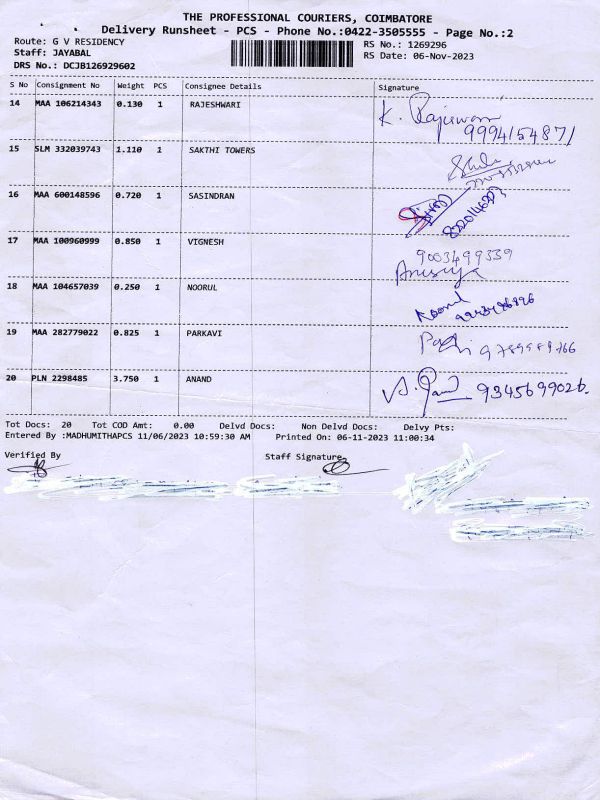 THE PROFESSIONAL COURIERS, COIMBATORE
Delivery Runsheet - PCS - Phone No.:0422-3505555 - Page No.:2
Route: G V RESIDENCY
Staff: JAYABAL
DRS No.: DCJB126929602
RS No.: 1269296
RS Date: 06-Nov-2023
S No Consignment No Weight PCS Consignee Details Signature
14 MAA 106214343 0.130 1 RAJESHWARI K. Rajeswari
9994154871
15 SLM 332039743 1.110 1 SAKTHI TOWERS
16 MAA 600148596 0.720 1 SASINDRAN
17 MAA 100960999 0.850 1 VIGNESH 9003499339
Anusuya
18 MAA 104657039 0.250 1 NOORUL Noorul
19 MAA 282779022 0.825 1 PARKAVI
20 PLN 2298485 3.750 1 ANAND 9345699026.
Tot Docs: 20 Tot COD Amt: 0.00 Delvd Docs: Non Delvd Docs: Delvy Pts:
Entered By :MADHUMITHAPCS 11/06/2023 10:59:30 AM Printed On: 06-11-2023 11:00:34
Verified By Staff Signature